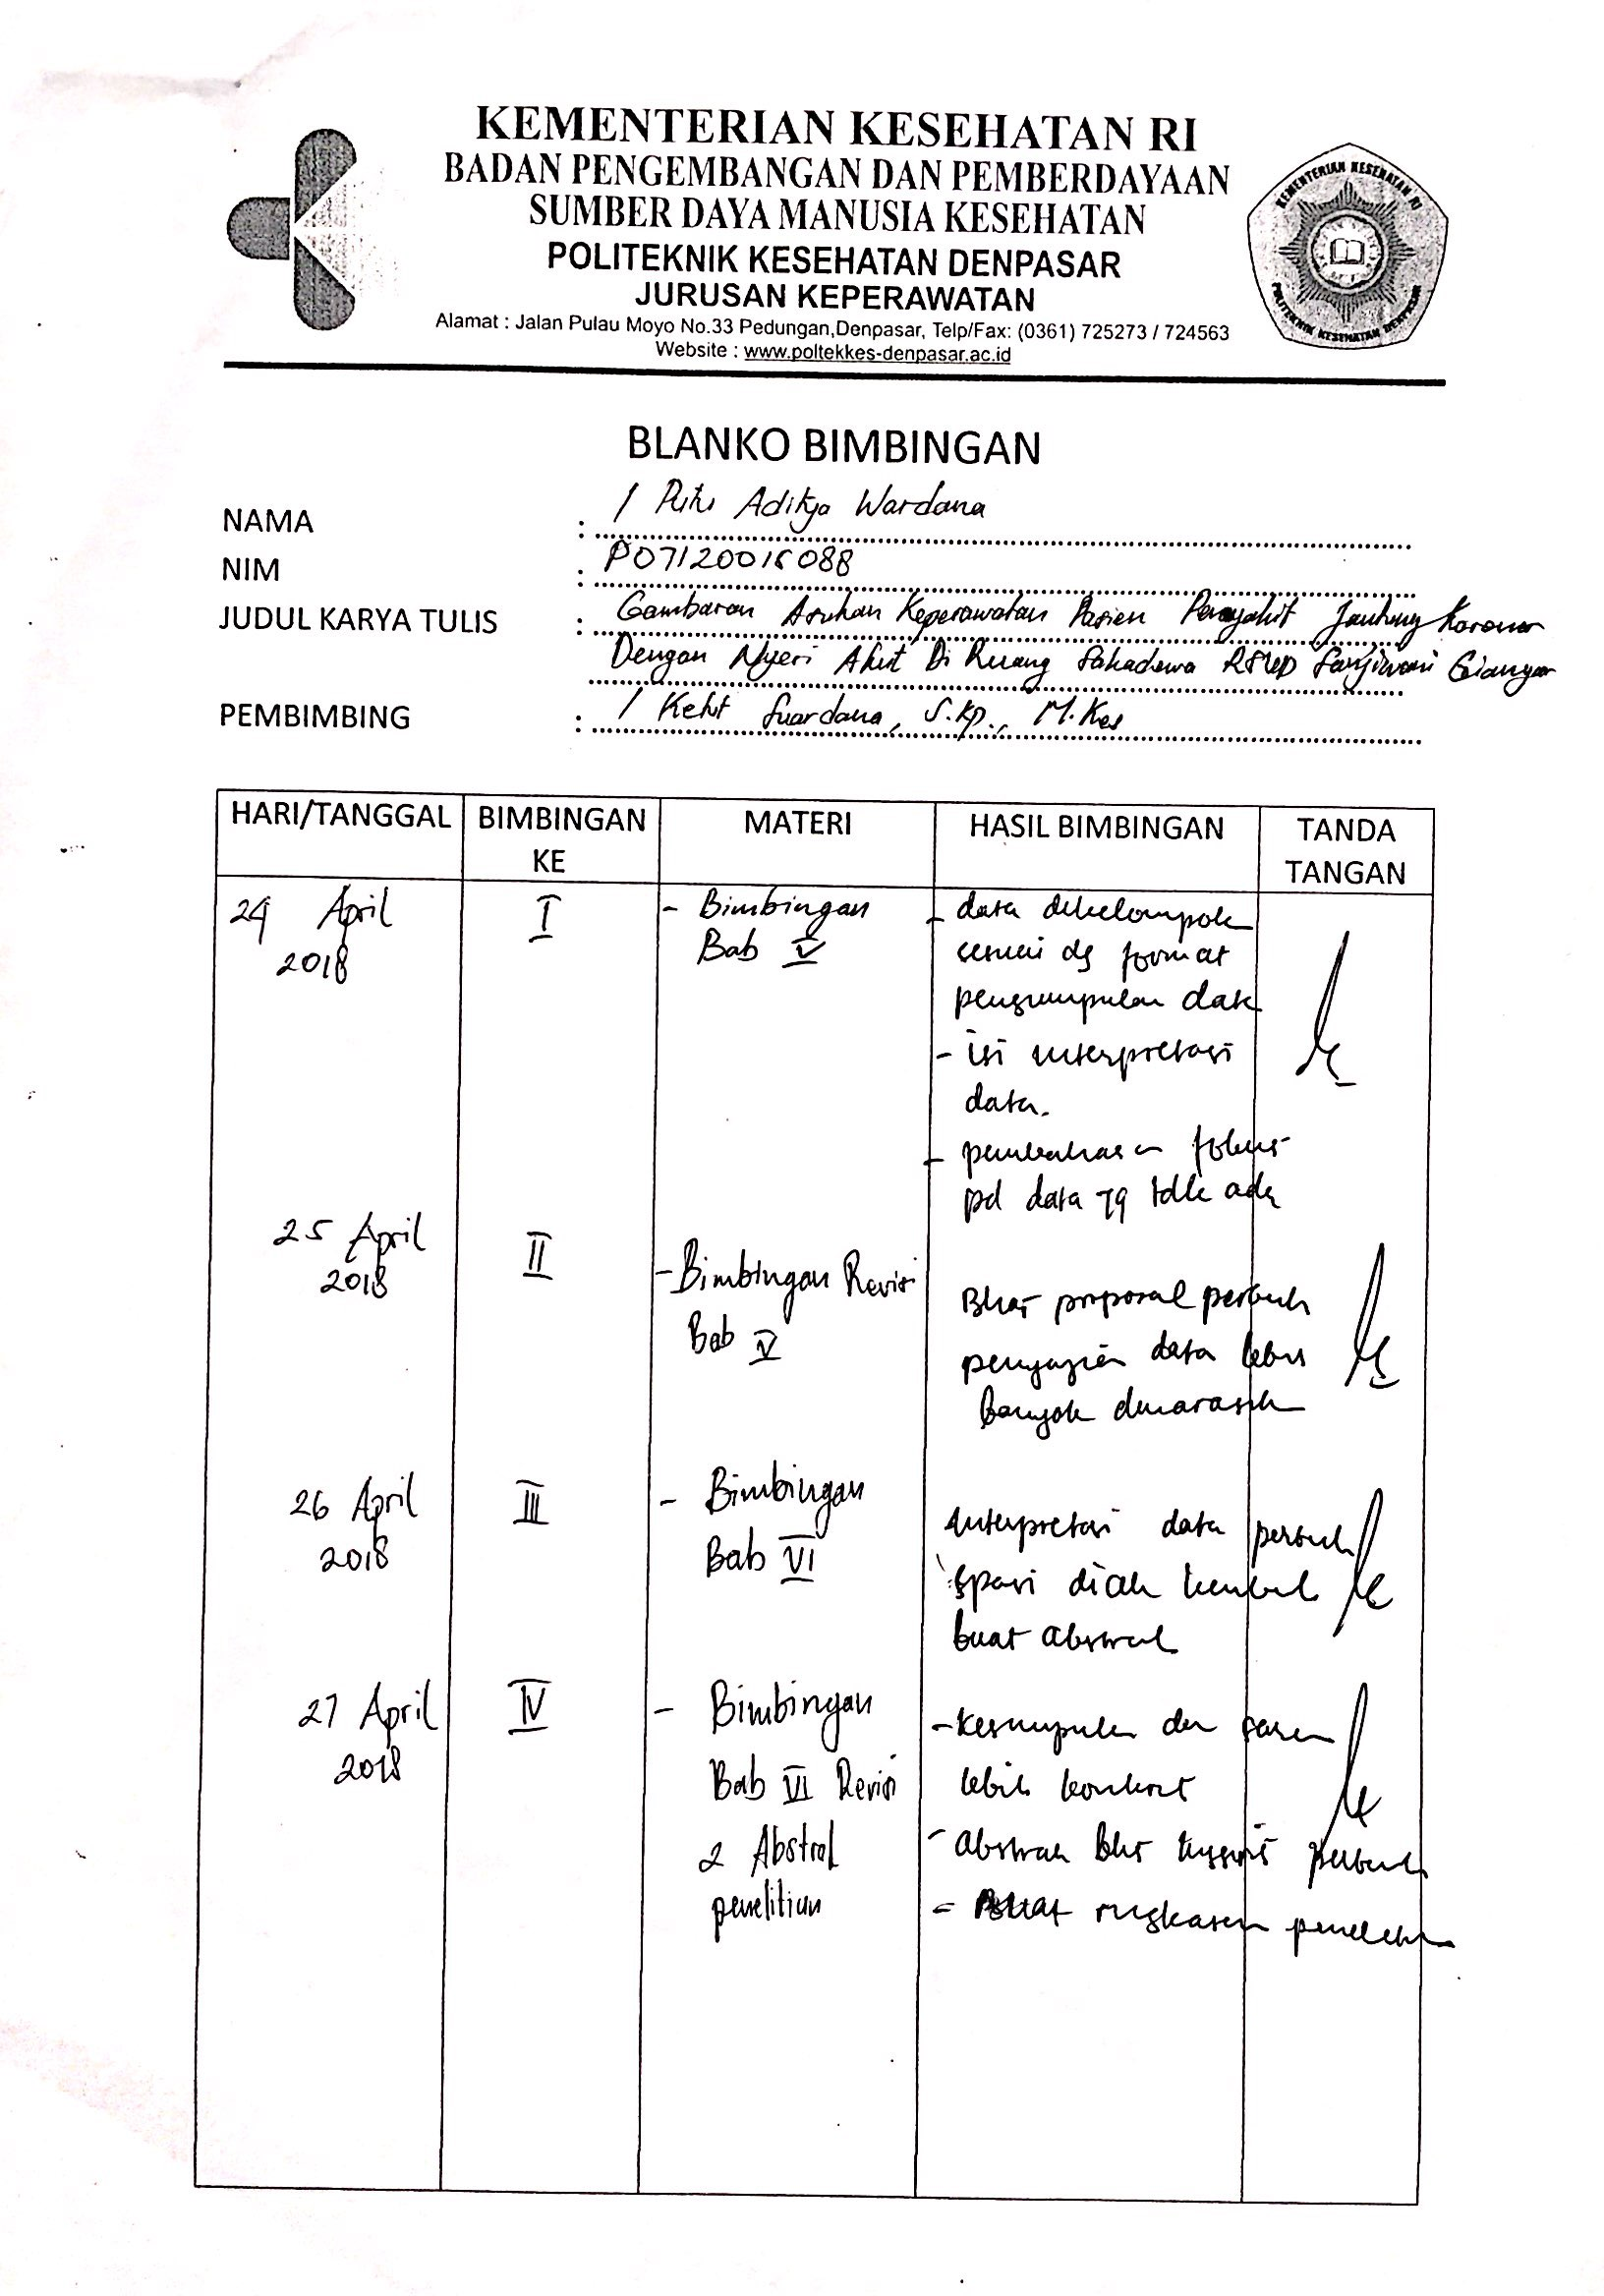 KEMENTERIAN KESEHATAN RI
BADAN PENGEMBANGAN DAN PEMBERDAYAAN
SUMBER DAYA MANUSIA KESEHATAN
POLITEKNIK KESEHATAN DENPASAR
JURUSAN KEPERAWATAN
Alamat : Jalan Pulau Moyo No.33 Pedungan,Denpasar, Telp/Fax: (0361) 725273 / 724563
Website : www.poltekkes-denpasar.ac.id
KEMENTERIAN KESEHATAN RI
POLITEKNIK KESEHATAN DENPASAR
BLANKO BIMBINGAN
NAMA : I Putu Aditya Wardana
NIM : P07120015088
JUDUL KARYA TULIS : Gambaran Asuhan Keperawatan Pasien Penyakit Jantung Koroner
Dengan Nyeri Akut Di Ruang Sahadewa RSUD Sanjiwani Gianyar
PEMBIMBING : I Ketut Suardana, S.Kp., M.Kes
HARI/TANGGAL BIMBINGAN KE MATERI HASIL BIMBINGAN TANDA TANGAN
24 April 2018 I - Bimbingan Bab V
- data dikelompok
sesuai dg format
pengumpulan data
- isi interpretasi
data.
- pembahasan fokus
pd data yg tdk ada
25 April 2018 II - Bimbingan Revisi Bab V
Buat proposal
penyajian data
banyak
26 April 2018 III - Bimbingan Bab VI
Interpretasi data
buat abstrak
27 April 2018 IV - Bimbingan Bab VI Revisi
2 Abstrak
penelitian
- Kesimpulan dan saran
lebih konkret
- abstrak
- Buat ringkasan penelitian